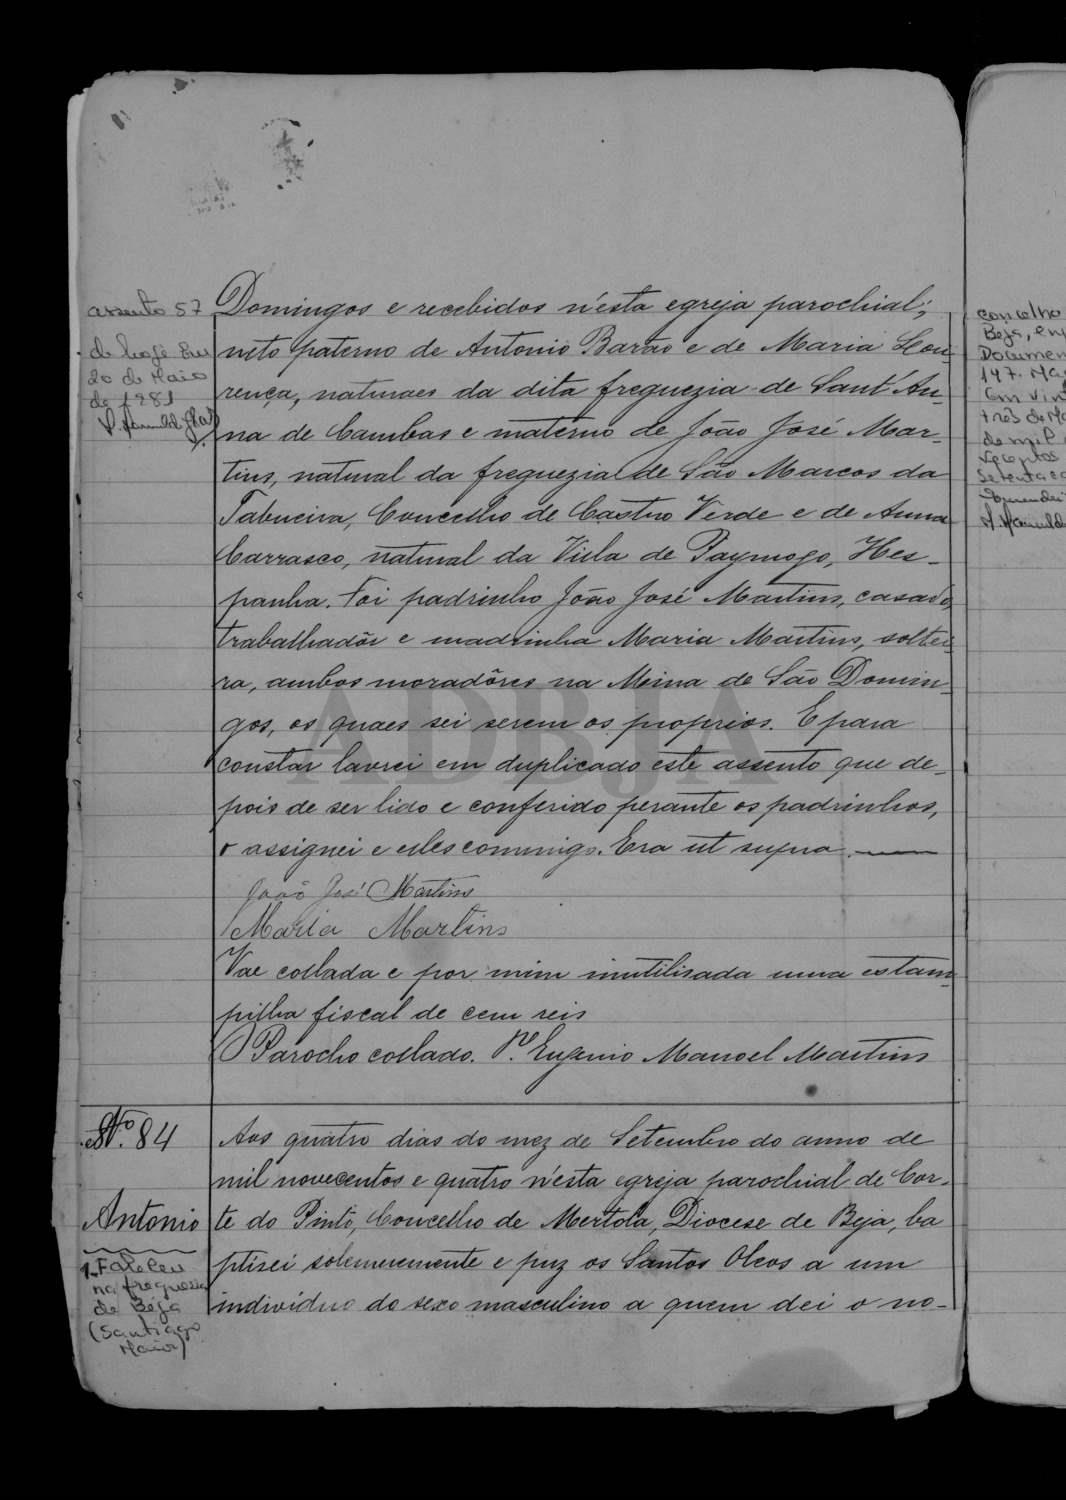 assento 57
de hoje Em
20 de Maio
de 1981
Domingos e recebidos n'esta egreja parochial;
neto paterno de Antonio Barão e de Maria Lou-
rença, naturaes da dita freguezia de Sant'An-
na de Cambas e materno de João José Mar-
tins, natural da freguezia de São Marcos da
Tabueira, Concelho de Castro Verde e de Anna
Carrasco, natural da Villa de Paymogo, Hes-
panha. Foi padrinho João José Martins, casado,
trabalhadôr e madrinha Maria Martins, soltei-
ra, ambos moradôres na Meina de São Domin-
gos, os quaes sei serem os proprios. E para
constar lavrei em duplicado este assento que de-
pois de ser lido e conferido perante os padrinhos,
o assignei e elles commigo. Era ut supra.
João José Martins
Maria Martins
Vae collada e por mim inutilisada uma estam-
pilha fiscal de cem reis
O Parocho collado. Pe. Eugenio Manoel Martins
Nº. 84
Antonio
1. Faleceu
na freguesia
de Beja
(Santiago
Maior)
Aos quatro dias do mez de Setembro do anno de
mil novecentos e quatro n'esta egreja parochial de Cor-
te do Pinto, Concelho de Mertola, Diocese de Beja, ba
ptisei solemnemente e puz os Santos Oleos a um
individuo do sexo masculino a quem dei o no-
concelho
Beja, em
Documen
147. Ma
Em vin
três de Ma
de mil
vecentos
setenta e
ADBJA